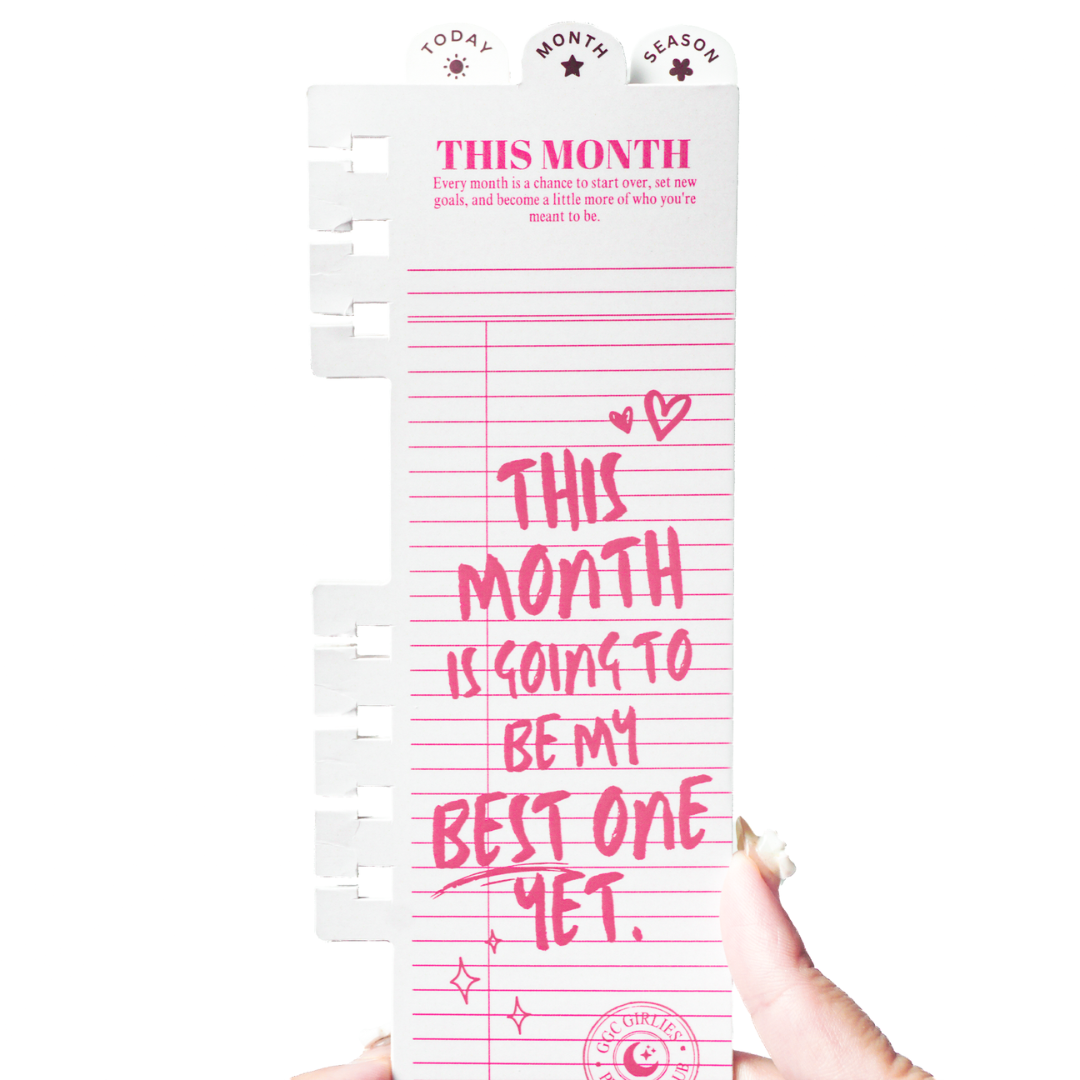 TODAY
MONTH
SEASON
THIS MONTH
Every month is a chance to start over, set new
goals, and become a little more of who you're
meant to be.
THIS
MONTH
IS GOING TO
BE MY
BEST ONE
YET.
GGC GIRLIES